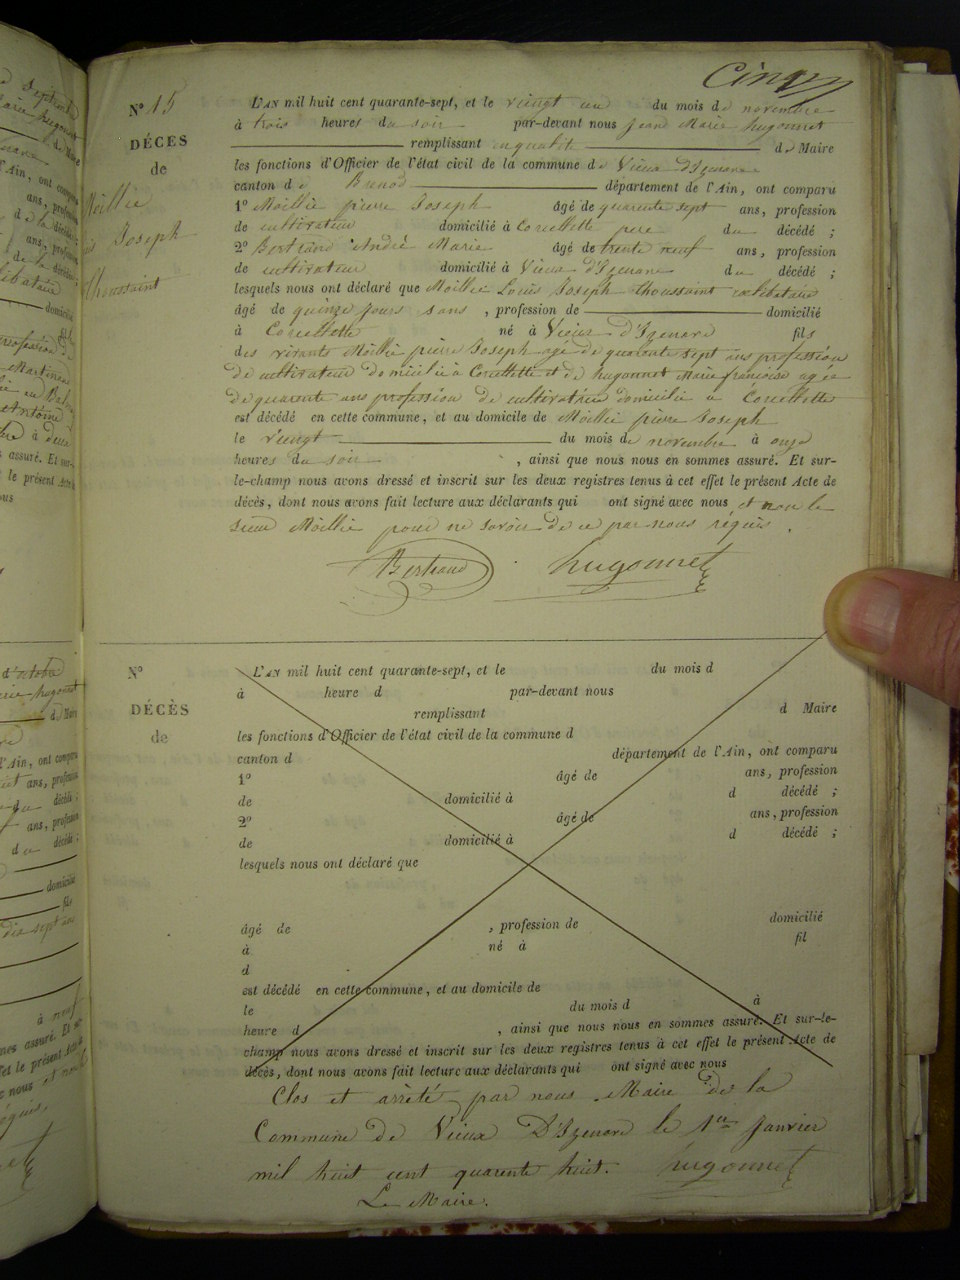 Cinq
N° 15
DÉCES
de
Moillié
Joseph
Thoussaint
L'AN mil huit cent quarante-sept, et le vingt un du mois de novembre
à trois heures du soir par-devant nous Jean Marie hugonnet
remplissant en qualité de Maire
les fonctions d'Officier de l'état civil de la commune de Vieux D'Izenave
canton de Brenod département de l'Ain, ont comparu
1° Moillié pierre Joseph âgé de quarente sept ans, profession
de cultivateur domicilié à Corcellette pere du décédé ;
2° Bertrand André Marie âgé de trente neuf ans, profession
de cultivateur domicilié à Vieux D'Izenave du décédé ;
lesquels nous ont déclaré que Moillié Louis Joseph Thoussaint celibataire
âgé de quinze jours sans , profession de domicilié
à Corcellette né à Vieux D'Izenave fils
des vivants Moillié pierre Joseph agé de quarente sept ans profession
de cultivateur domicilié à Corcellette et de hugonnet Marie françoise agée
de quarente ans profession de cultivatrice domicilié à Corcellette
est décédé en cette commune, et au domicile de Moillié pierre Joseph
le vingt du mois de novembre à onze
heures du soir , ainsi que nous nous en sommes assuré. Et sur-
le-champ nous avons dressé et inscrit sur les deux registres tenus à cet effet le présent Acte de
décès, dont nous avons fait lecture aux déclarants qui ont signé avec nous et non le
sieur Moillié pour ne savoir de ce par nous réquis .
Bertrand hugonnet
N°
DÉCÈS
de
L'AN mil huit cent quarante-sept, et le du mois d
à heure d par-devant nous
remplissant d Maire
les fonctions d'Officier de l'état civil de la commune d
canton d département de l'Ain, ont comparu
1° âgé de ans, profession
de domicilié à d décédé ;
2° âgé de ans, profession
de domicilié à d décédé ;
lesquels nous ont déclaré que
âgé de , profession de domicilié
à né à fil
d
est décédé en cette commune, et au domicile de
le du mois d à
heure d , ainsi que nous nous en sommes assuré. Et sur-le-
champ nous avons dressé et inscrit sur les deux registres tenus à cet effet le présent Acte de
décès, dont nous avons fait lecture aux déclarants qui ont signé avec nous
Clos et arrêté par nous Maire de la
Commune de Vieux D'Izenave le 1er Janvier
mil huit cent quarente huit. hugonnet
Le Maire.